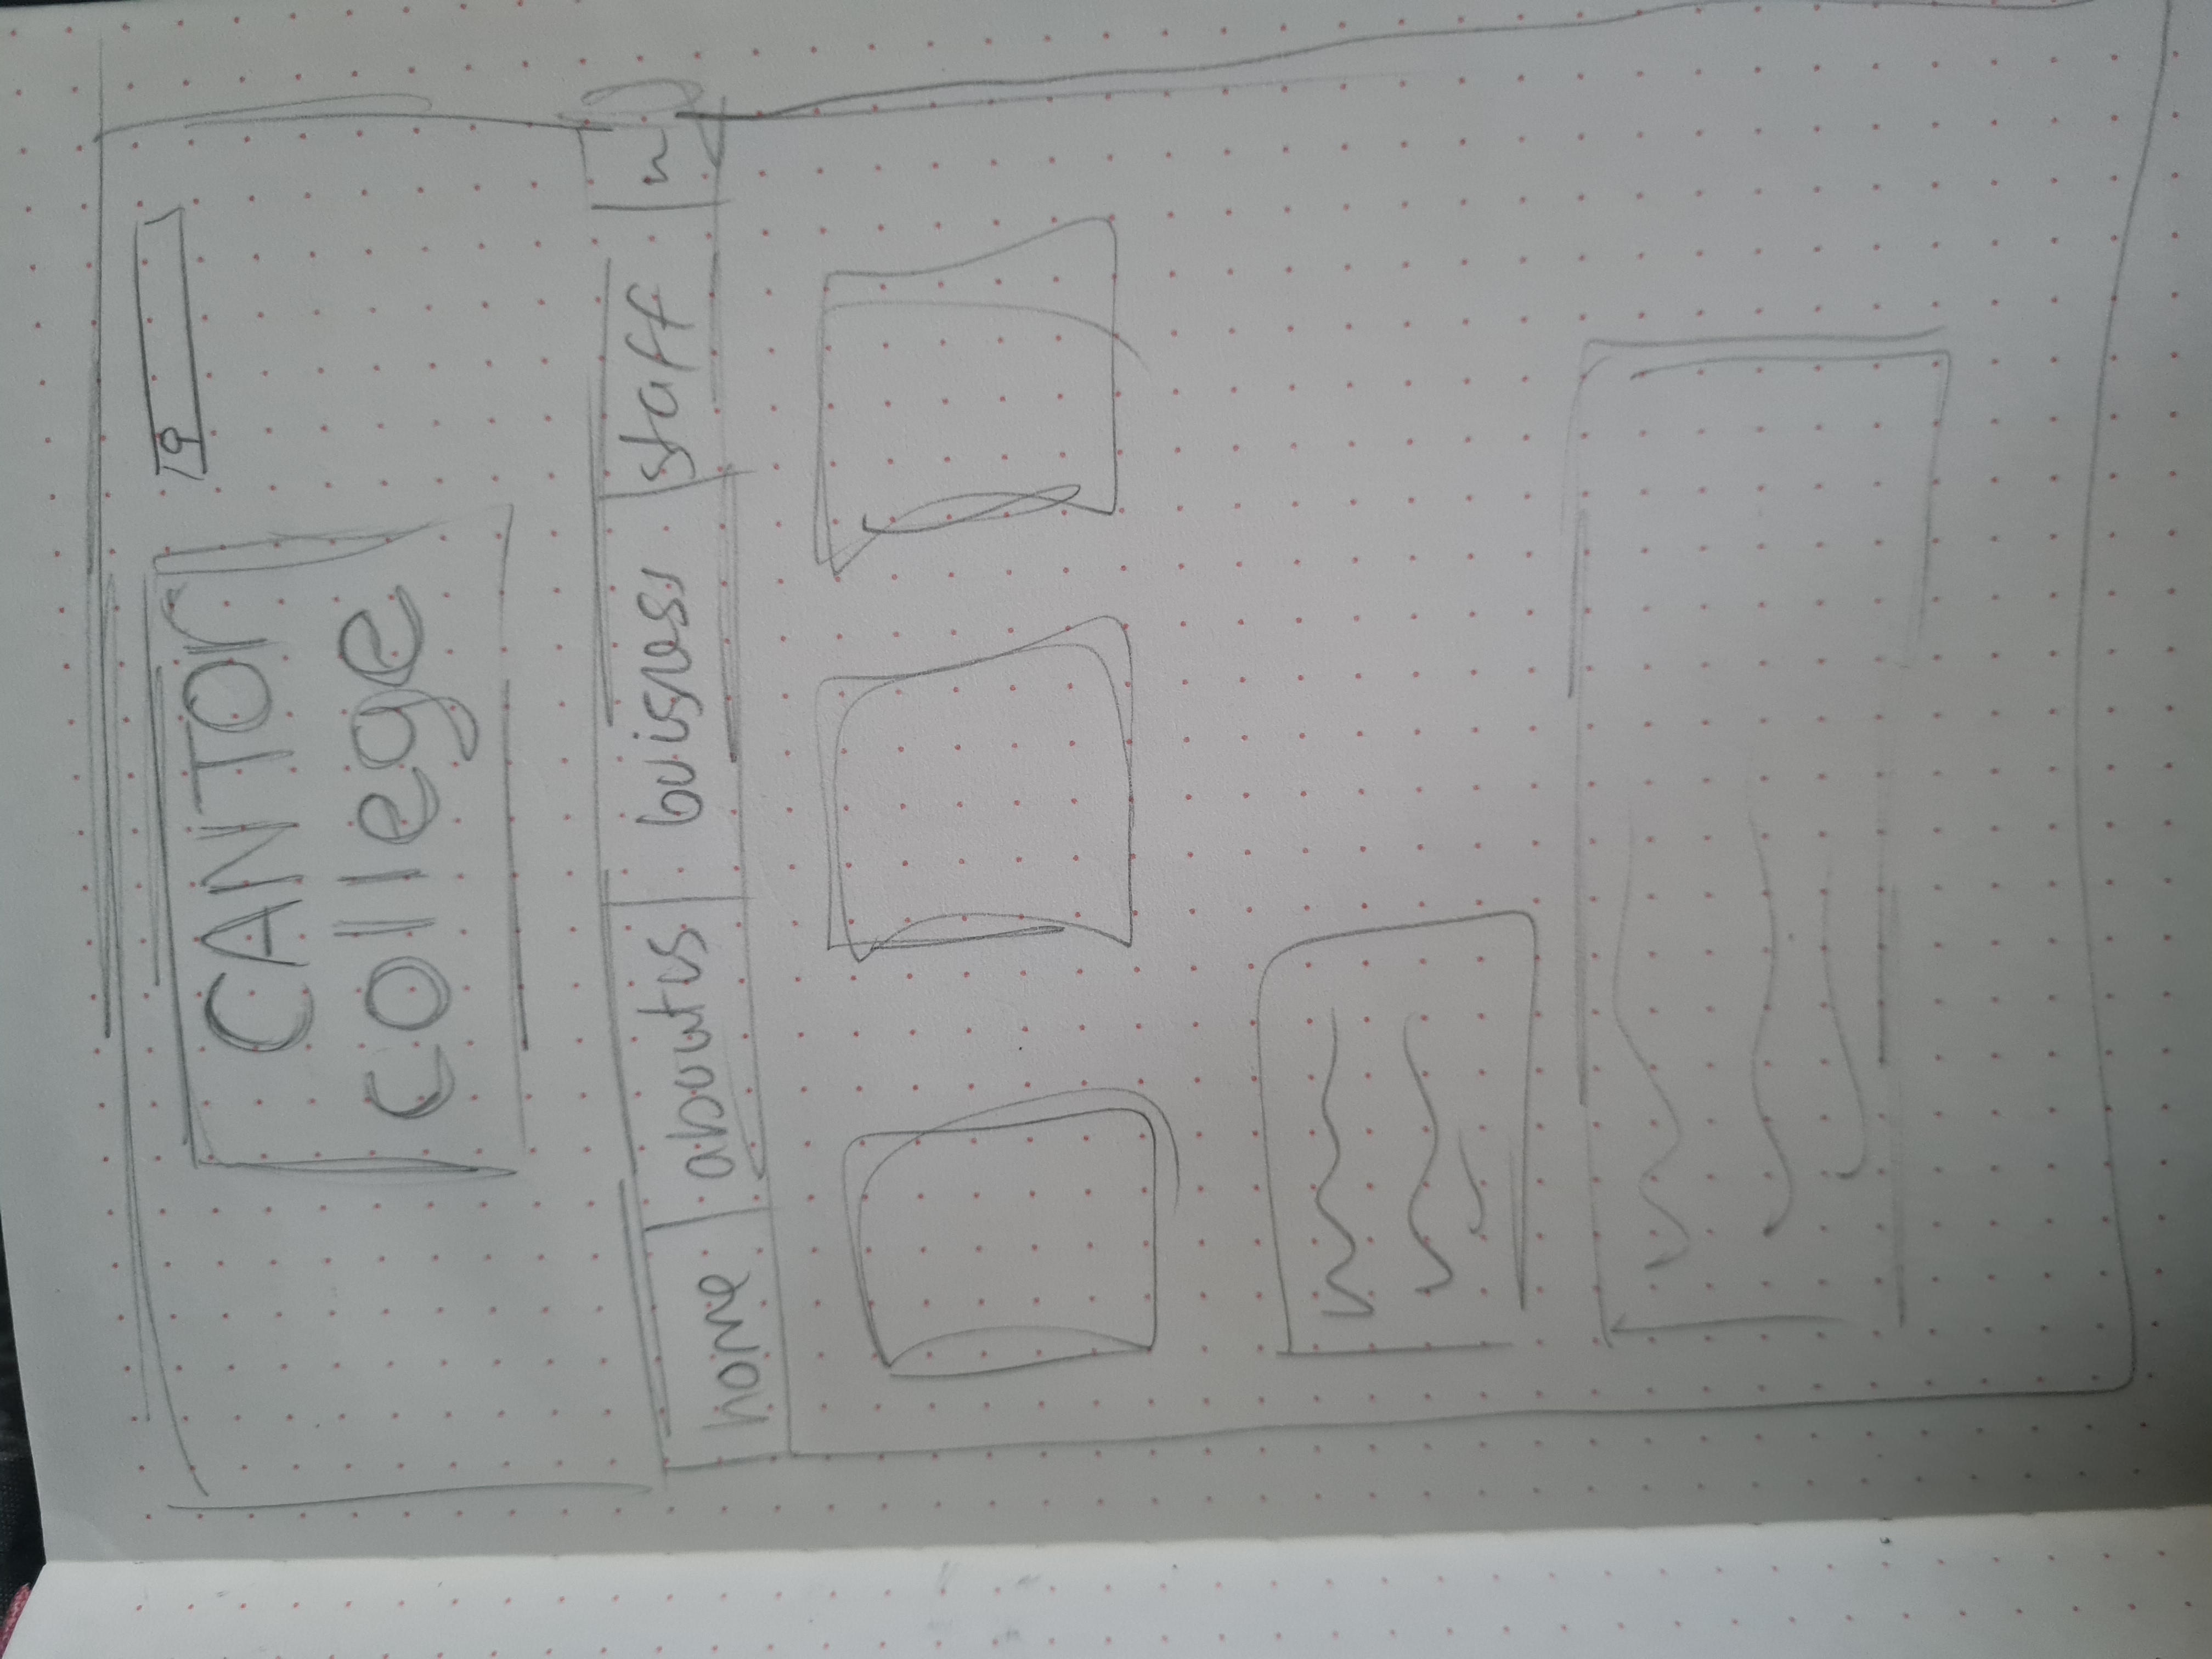 CANTOr
college
home about us buisness staff